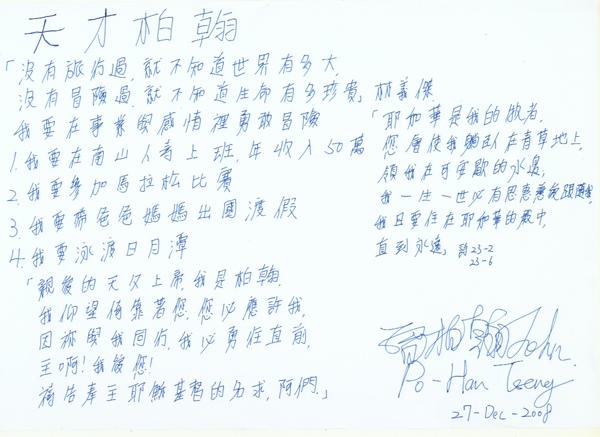 天才柏翰
「沒有旅行過,就不知道世界有多大.
沒有冒險過,就不知道生命有多珍貴」林義傑
我要在事業與感情裡勇敢冒險
1.我要在南山人壽上班.年收入50萬
2.我要參加馬拉松比賽
3.我要帶爸爸媽媽出國渡假
4.我要泳渡日月潭
「親愛的天父上帝,我是柏翰.
我仰望倚靠著您.您必應許我.
因祢與我同行.我必勇往直前.
主啊!我愛您!
禱告奉主耶穌基督的名求,阿們.」
「耶和華是我的牧者.
您會使我躺臥在青草地上.
領我在可安歇的水邊.
我一生一世必有恩惠慈愛跟隨我
我且要住在耶和華的殿中.
直到永遠」詩23-2
23-6
曾柏翰 John.
Po-Han Tseng
27-Dec-2008